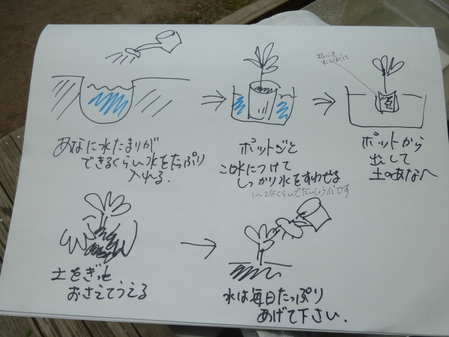 あなに水たまりが
できるくらい水をたっぷり
入れる.
ポットごと
水につけて
しっかり水をすわせる
ポットから
出して
土のあなへ
土をぎゅっと
おさえてうえる
水は毎日たっぷり
あげて下さい.